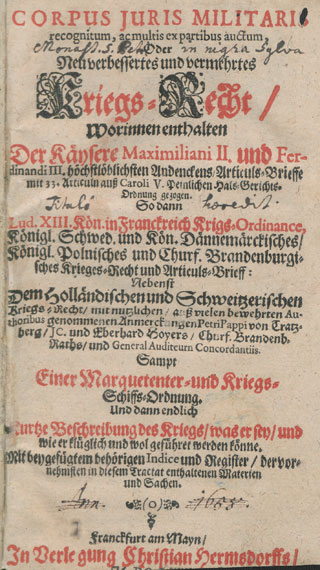 CORPUS JURIS MILITARIS
recognitum, ac multis ex partibus auctum,
Monast. S. Petri Oder in nigra Sylva
Neu verbessertes und vermehrtes
Kriegs-Recht /
Worinnen enthalten
Der Käysere Maximiliani II. und Fer-
dinandi III. höchstlöblichsten Andenckens Articuls-Brieffe
mit 33. Articuln auß Caroli V. Peinlichen Hals-Gerichts-
Ordnung gezogen.
So dann
Lud. XIII. Kön. in Franckreich Krigs-Ordinance,
Königl. Schwed. und Kön. Dännemärckisches /
Königl. Polnisches und Churf. Brandenburgi-
sches Krieges-Recht und Articuls-Brieff:
Nebenst
Dem Holländischen und Schweitzerischen
Kriegs-Recht / mit nutzlichen / auß vielen bewehrten Au-
thoribus genommenen Anmerckungen Petri Pappi von Tratz-
berg / JC. und Eberhard Hoyers / Churf. Brandenb.
Raths / und General Auditeurn Concordantiis.
Sampt
Einer Marquetenter- und Kriegs-
Schiffs-Ordnung.
Und dann endlich
Kurtze Beschreibung des Kriegs / was er sey / und
wie er klüglich und wol geführet werden könne.
Mit beygefügtem behörigen Indice und Register / der vor-
nehmsten in diesem Tractat enthaltenen Materien
und Sachen.
(o)
Franckfurt am Mayn /
In Verlegung Christian Hermsdorffs /